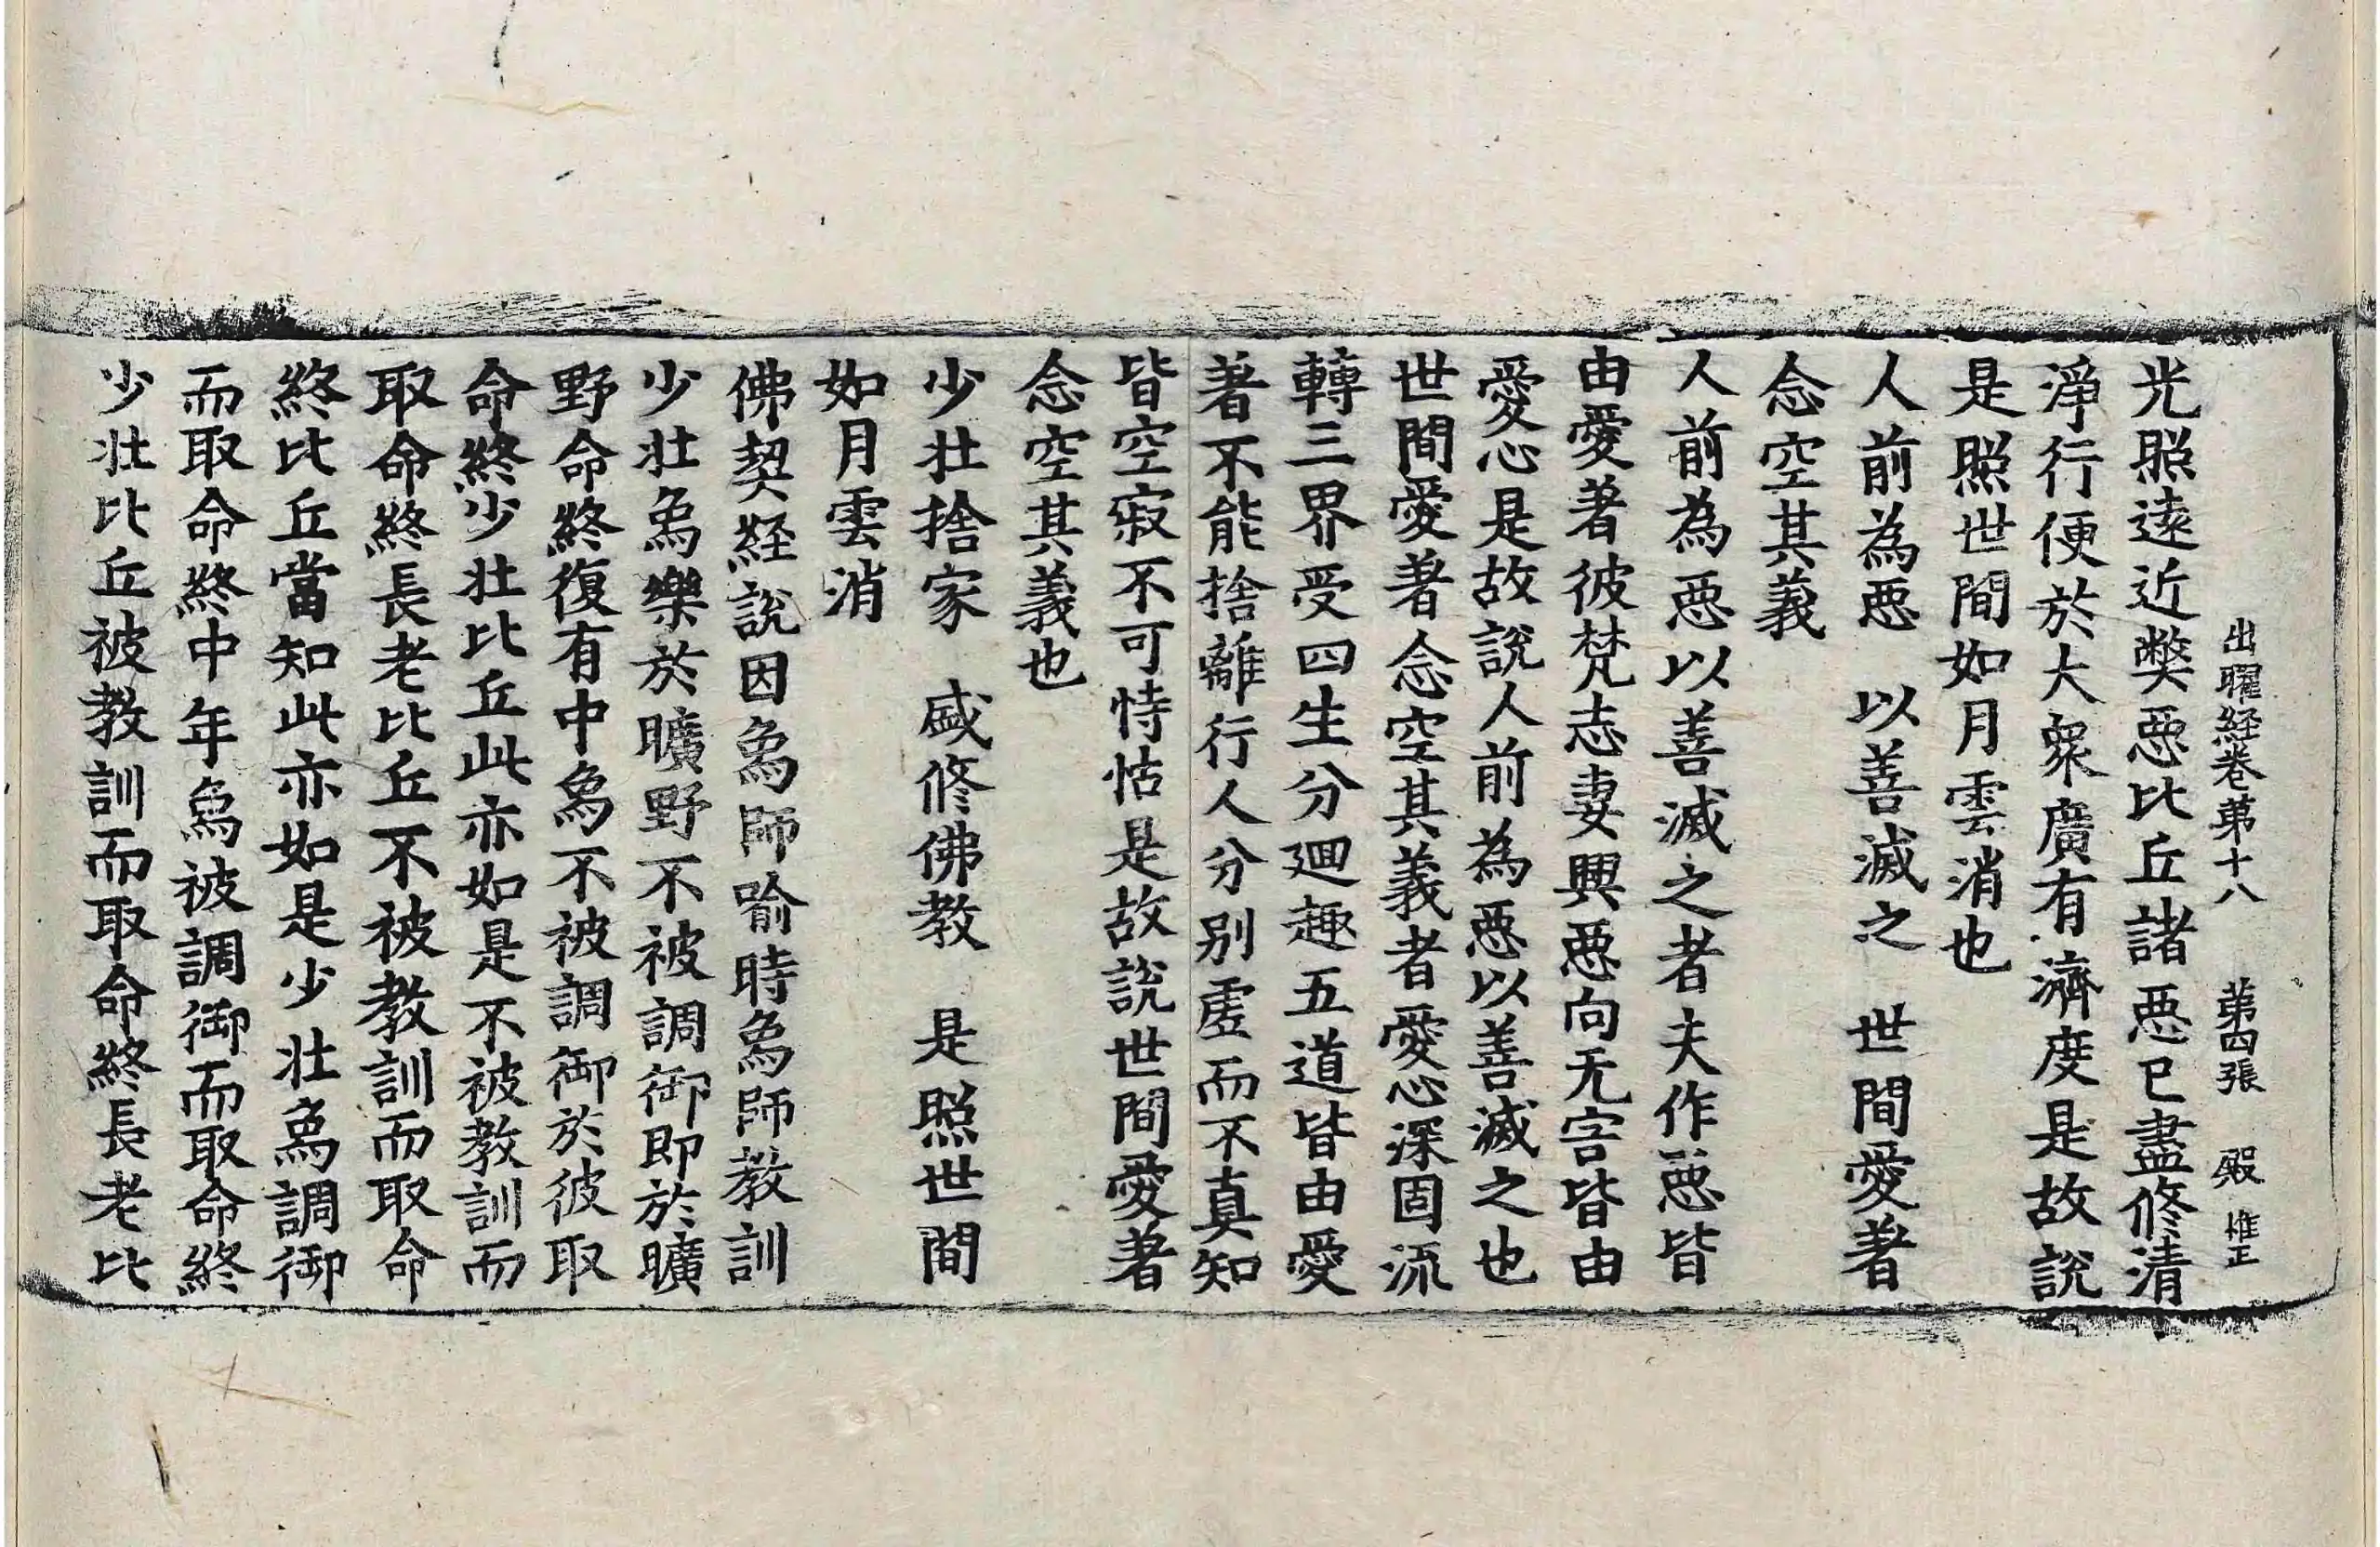 出曜経巻苐十八 苐四張 殿 惟正
光照遠近弊悪比丘諸悪已盡修清
淨行便於大衆廣有濟度是故説
是照世間如月雲消也
人前為悪 以善滅之 世間愛著
念空其義
人前為悪以善滅之者夫作悪皆
由愛著彼梵志妻興悪向无害皆由
愛心是故説人前為悪以善滅之也
世間愛著念空其義者愛心深固流
轉三界受四生分迴趣五道皆由愛
著不能捨離行人分別虛而不真知
皆空寂不可恃怙是故説世間愛著
念空其義也
少壯捨家 盛修佛教 是照世間
如月雲消
佛契経説因爲師喻時爲師教訓
少壯爲樂於曠野不被調御即於曠
野命終復有中爲不被調御於彼取
命終少壯比丘此亦如是不被教訓而
取命終長老比丘不被教訓而取命
終比丘當知此亦如是少壯爲調御
而取命終中年爲被調御而取命終
少壯比丘被教訓而取命終長老比